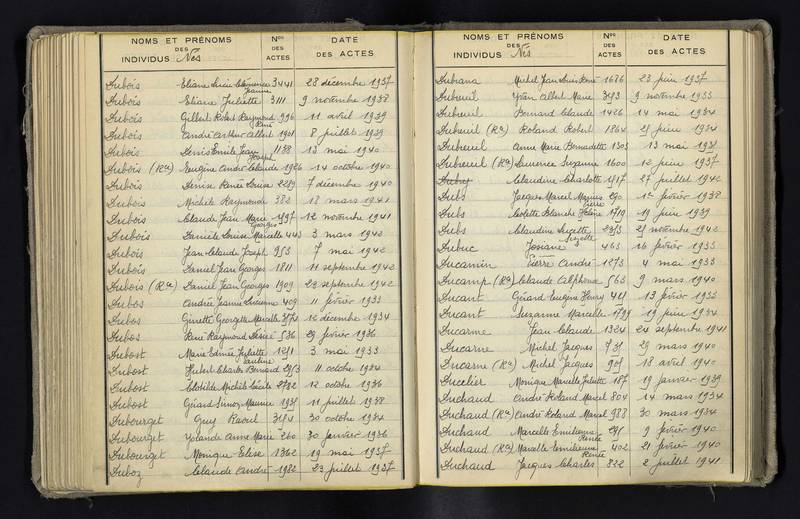 NOMS ET PRÉNOMS DES INDIVIDUS Nés Nos DES ACTES DATE DES ACTES
Dubois Eliane Lucie Clémence Jeanne 3441 28 décembre 1937
Dubois Eliane Juliette 3111 9 novembre 1938
Dubois Gilbert Robert Raymond René 996 11 avril 1939
Dubois André Arthur Albert 1901 8 juillet 1939
Dubois Denis Emile Jean Joseph 1188 13 mai 1940
Dubois (Ra) Eugène André Claude 1926 14 octobre 1940
Dubois Denise Renée Louise 2289 7 décembre 1940
Dubois Michèle Raymonde 382 18 mars 1941
Dubois Claude Jean Marie Georges 1997 12 novembre 1941
Dubois Danièle Louise Marcelle 443 3 mars 1942
Dubois Jean Claude Joseph 953 7 mai 1942
Dubois Daniel Jean Georges 1811 11 septembre 1942
Dubois (Ra) Daniel Jean Georges 1909 29 septembre 1942
Dubos André Jeanne Lucienne 409 11 février 1933
Dubos Ginette Georgette Marcelle 12 décembre 1934
Dubos René Raymond Désiré 536 29 février 1936
Dubost Marie Edmée Juliette Pauline 1251 3 mai 1933
Dubost Hubert Charles Bernard 11 octobre 1934
Dubost Clotilde Michèle Cécile 2782 12 octobre 1936
Dubost Gérard Maurice 11 juillet 1938
Dubourget Guy Raoul 30 octobre 1934
Dubourget Yolande Anne Marie 260 30 janvier 1936
Dubourget Monique Elise 1362 19 mai 1937
Duboz Claude André 1982 23 juillet 1937
NOMS ET PRÉNOMS DES INDIVIDUS Nés Nos DES ACTES DATE DES ACTES
Dubrana Michel Jean Louis René 1686 23 juin 1937
Dubreuil Yvan Albert Marie 9 novembre 1933
Dubreuil Bernard Claude 1426 14 mai 1934
Dubreuil (Ra) Roland Robert 1864 21 juin 1934
Dubreuil Anne Marie Bernadette 1303 13 mai 1931
Dubreuil (Ra) Laurence Suzanne 1600 12 juin 1937
Claudine Charlotte 1917 27 juillet 1942
Dubs Jacques Marcel Maurice Pierre 290 1er février 1938
Dubs Colette Blanche Hélène 1719 19 juin 1939
Dubs Claudine Lucette 21 novembre 1942
Dubuc Josiane Lucette 465 16 février 1933
Ducamin Pierre André 1273 4 mai 1933
Ducamp (Ra) Claude Alphonse 563 9 mars 1940
Ducant Gérard Eugène Henry 421 13 février 1933
Ducant Suzanne Marcelle 1798 19 juin 1934
Ducarme Jean Claude 1324 24 septembre 1941
Ducarne Michel Jacques 731 29 mars 1940
Ducarne (Ra) Michel Jacques 909 18 avril 1940
Ducelier Monique Marcelle Juliette 187 19 janvier 1939
Duchaud André Roland Marcel 804 14 mars 1934
Duchaud (Ra) André Roland Marcel 988 30 mars 1934
Duchaud Marcelle Emilienne Renée 291 9 février 1940
Duchaud (Ra) Marcelle Emilienne Renée 402 21 février 1940
Duchaud Jacques Charles 822 2 juillet 1941